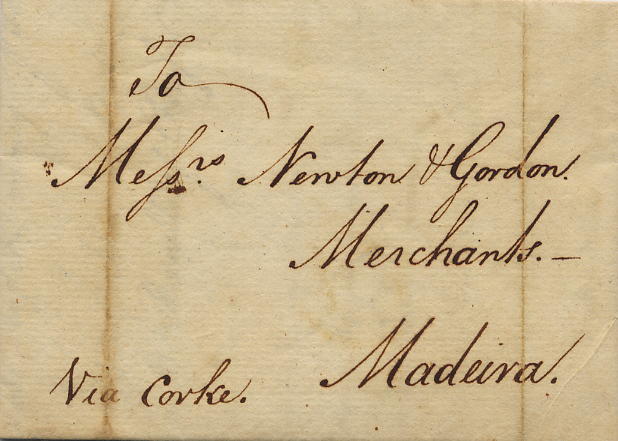 To
Meſsrs Newton & Gordon.
Merchants.—
Madeira.
Via Corke.